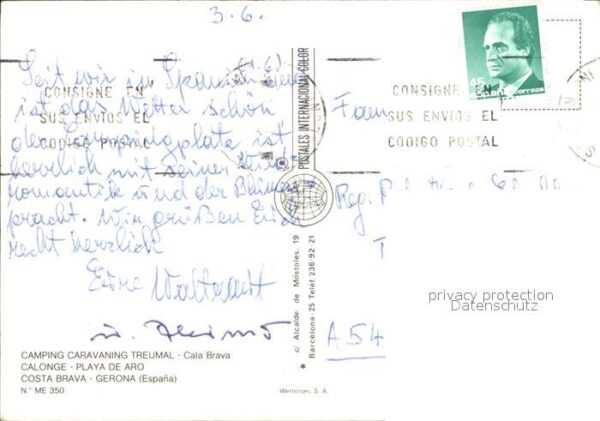 3.6.
Seit wir in Spanien sind
(1.6)
ist das Wetter schön
der Campingplatz ist
herrlich mit seiner
romantik und der Blumen-
pracht. Wir grüßen Euch
recht herzlich
Eure Waltraut
u.
CONSIGNE EN
SUS ENVIOS EL
CODIGO POSTAL
CAMPING CARAVANING TREUMAL - Cala Brava
CALONGE - PLAYA DE ARO
COSTA BRAVA - GERONA (España)
N.º ME 350
POSTALES INTERNACIONAL COLOR
c/ Alcalde de Móstoles, 19
Barcelona-25 Teléf 236 92 21
Werticrom, S. A.
45
España correos
CONSIGNE EN
SUS ENVIOS EL
CODIGO POSTAL
Fam
A 54
privacy protection
Datenschutz